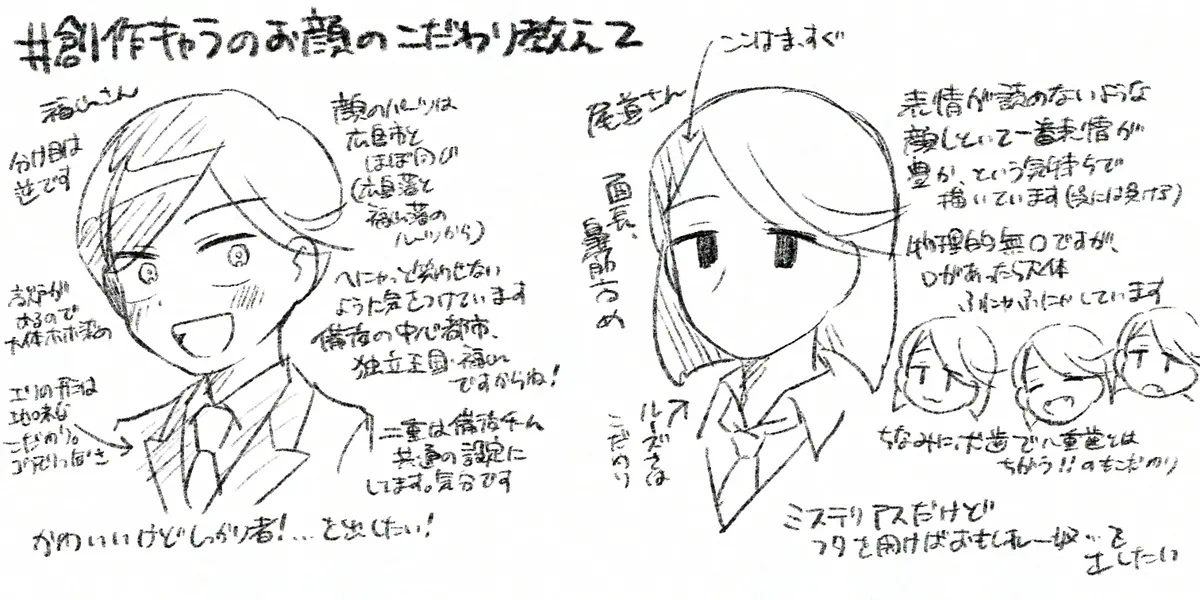 #創作キャラのお顔のこだわり教えて
福山さん
分け目は
逆です
顔のパーツは
広島市と
ほぼ同じ
(広島藩と
福山藩の
ルーツから)
高炉が
あるので
大体ホホ染め
へにゃっと笑わせない
ように気をつけています
備後の中心都市、
独立王国・福山
ですからね!
エリの形は
地味な
こだわり。
ゴツでっぱさ
二重は備後チーム
共通の設定に
してます。気分です
かわいいけどしっかり者!…を出したい!
ここはまっすぐ
尾道さん
面長、
鼻筋長め
表情が読めないような
顔しといて一番表情が
豊か、という気持ちで
描いています(炎には負ける)
物理的無口ですが、
口があったら大体
ふにゃふにゃしています
ちなみに、犬歯で八重歯とは
ちがう!!のもこだわり
ルーズさは
こだわり
ミステリアスだけど
フタを開けばおもしれー奴…を
出したい